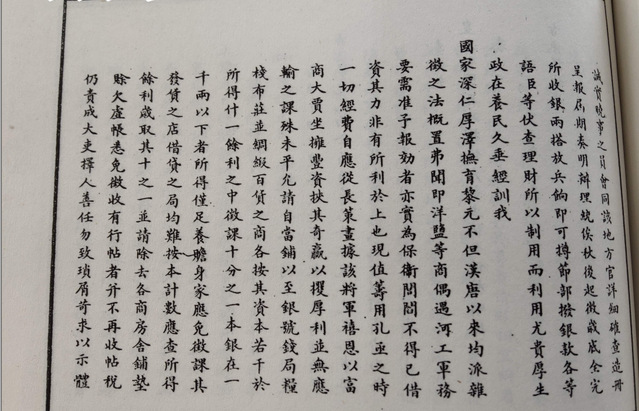 誠實曉事之員會同該地方官詳細確查造冊
呈報屆期奏明辦理統俟秋後起徵歲底全完
所收銀兩搭放兵餉即可撙節部撥銀款各等
語臣等伏查理財所以制用而利用尤貴厚生
政在養民久垂經訓我
國家深仁厚澤撫育黎元不但漢唐以來均派雜
徵之法概置弗聞即洋鹽等商偶遇河工軍務
要需准予報効者亦實為保衛閭閻不得已借
資其力非有所利於上也現值籌用孔亟之時
一切經費自應從長策畫據該將軍禧恩以富
商大賈坐擁豐資挾其奇贏以攫厚利並無應
輸之課殊未平允請自當鋪以至銀號錢局糧
棧布莊並綢緞百貨之商各按其資本若干於
所得什一餘利之中徵課十分之一本銀在一
千兩以下者所得僅足養贍身家應免徵課其
發貨之店借貸之局均難按本計數應查所得
餘利歲取其十之一並請除去各商房舍鋪墊
賒欠虛帳悉免徵收有行帖者并不再收帖稅
仍責成大吏擇人善任勿致瑣屑苛求以示體